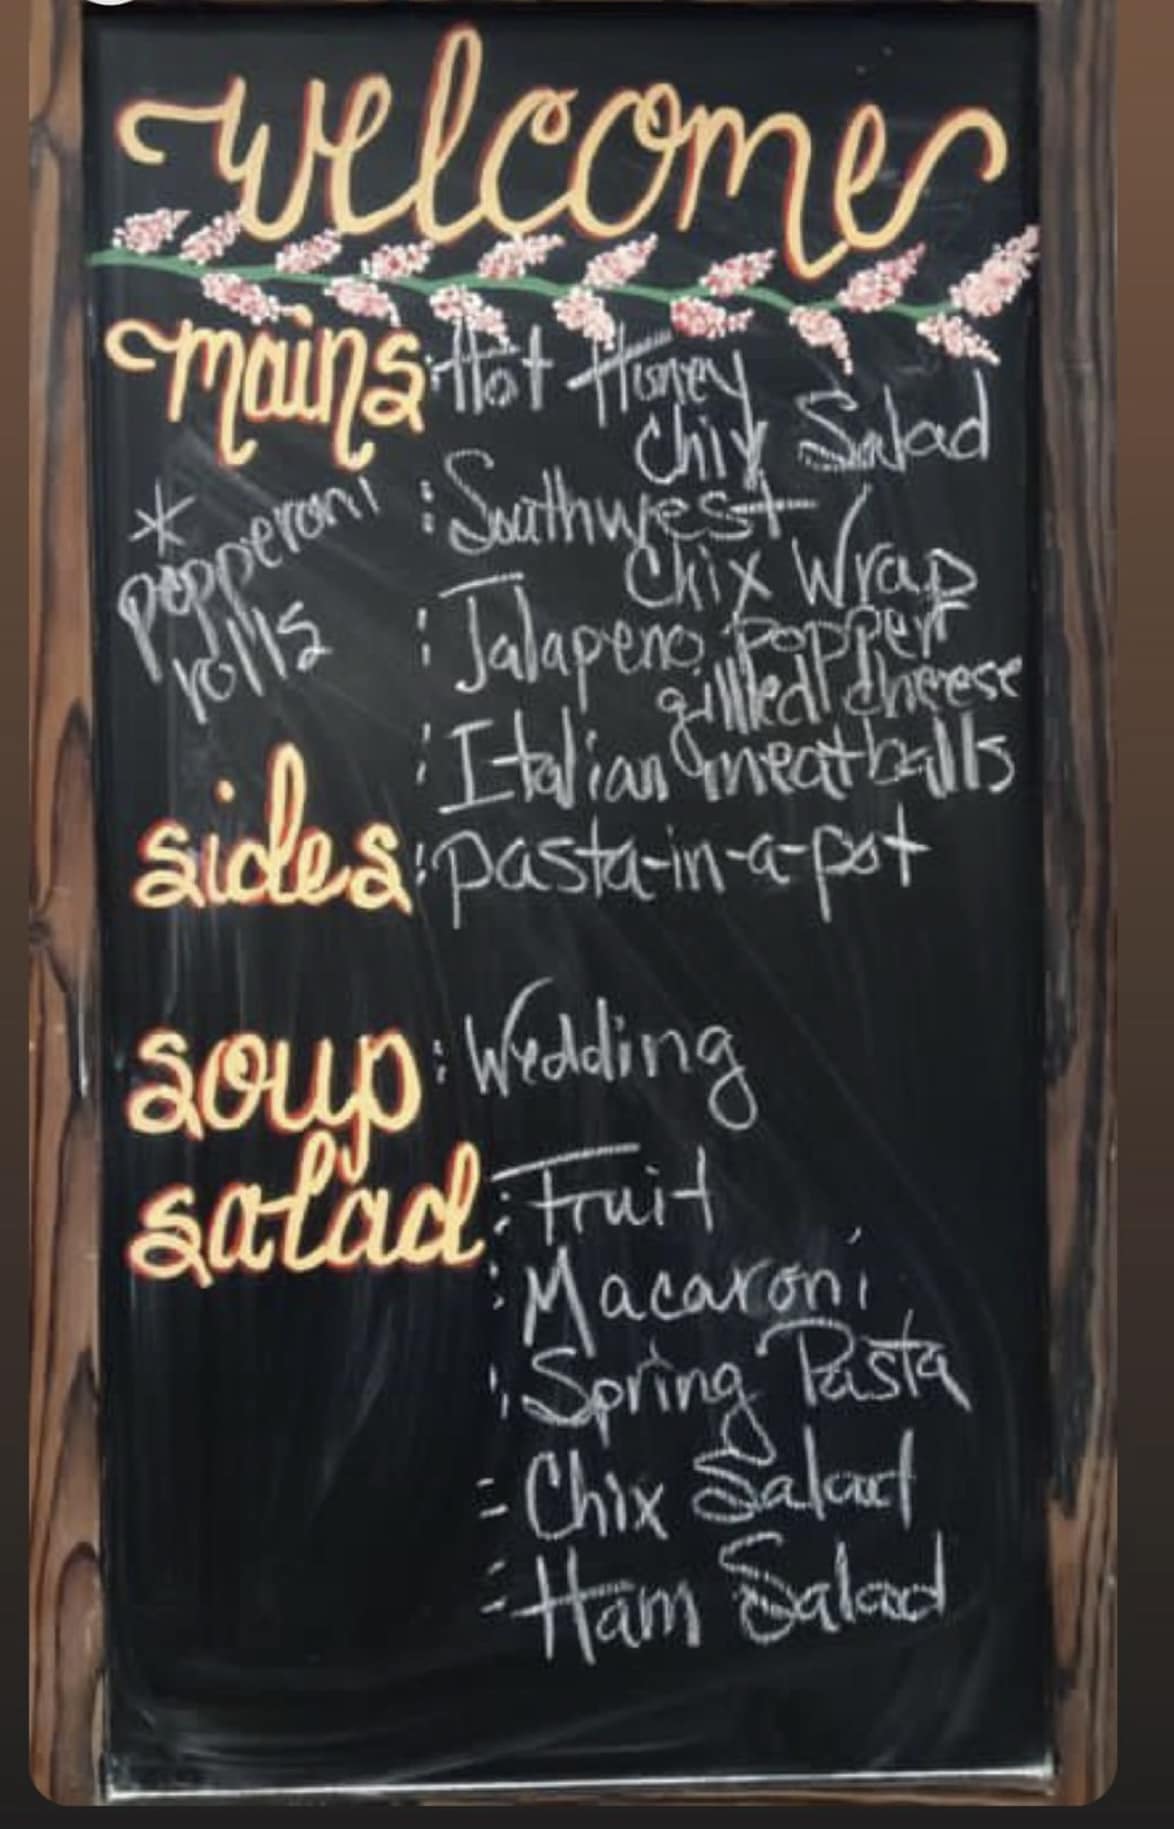 welcome
mains : Hot Honey
Chix Salad
* pepperoni
rolls
: Southwest
Chix Wrap
: Jalapeno popper
grilled cheese
: Italian meatballs
sides : pasta-in-a-pot
soup : Wedding
salad : Fruit
: Macaroni
: Spring Pasta
- Chix Salad
- Ham Salad